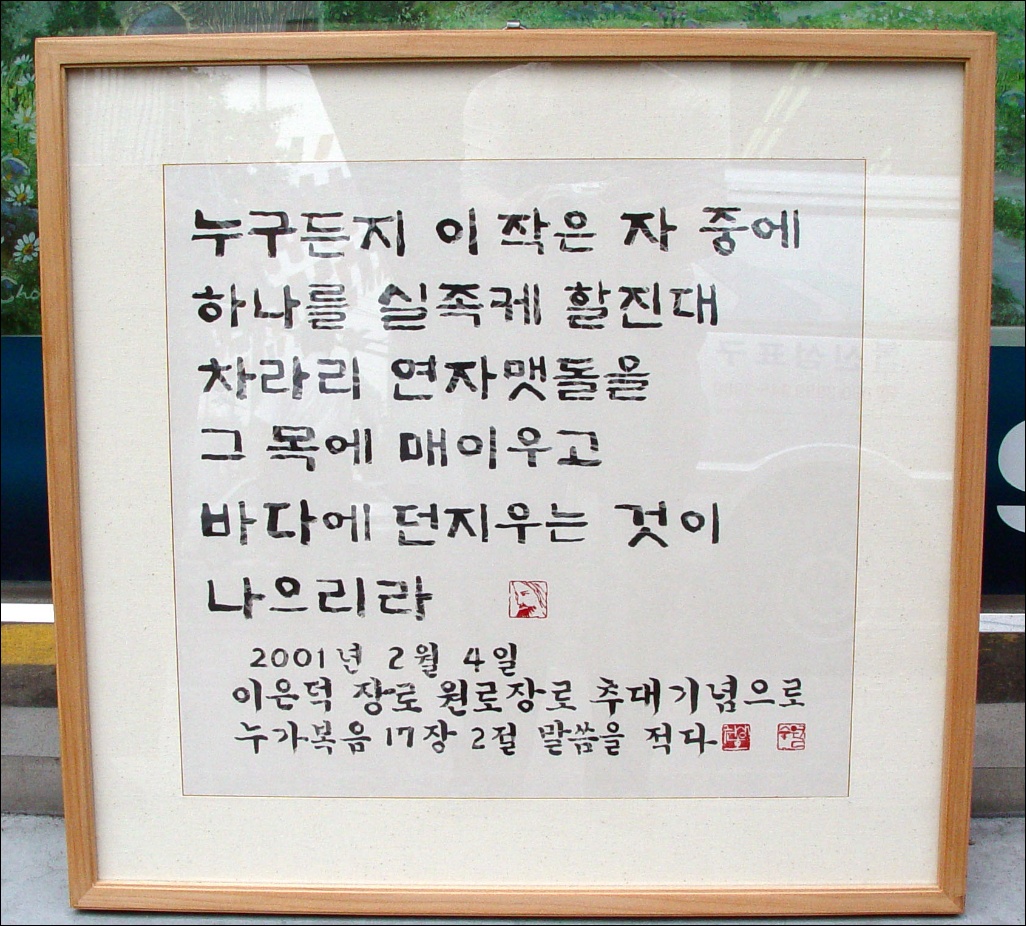 누구든지 이 작은 자 중에
하나를 실족케 할진대
차라리 연자맷돌을
그 목에 매이우고
바다에 던지우는 것이
나으리라
2001년 2월 4일
이은덕 장로 원로장로 추대기념으로
누가복음 17장 2절 말씀을 적다